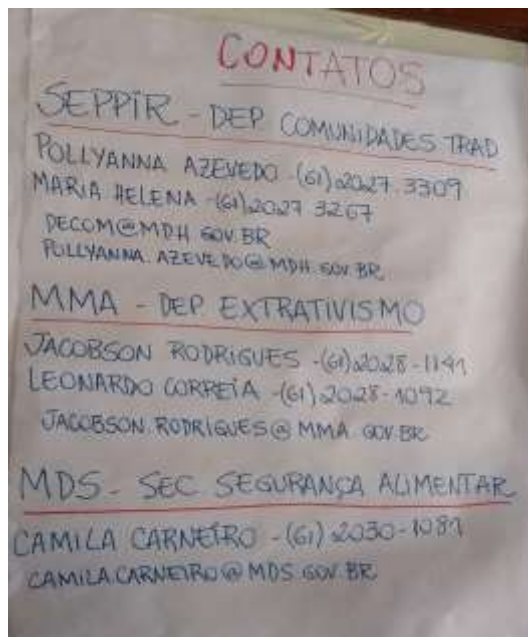 CONTATOS
SEPPIR - DEP COMUNIDADES TRAD
POLLYANNA AZEVEDO -(61)2027.3309
MARIA HELENA -(61)2027 3267
DECOM@MDH.GOV.BR
POLLYANNA.AZEVEDO@MDH.GOV.BR
MMA - DEP EXTRATIVISMO
JACOBSON RODRIGUES -(61)2028-1141
LEONARDO CORREIA -(61)2028-1092
JACOBSON.RODRIGUES@MMA.GOV.BR
MDS - SEC SEGURANÇA ALIMENTAR
CAMILA CARNEIRO -(61)2030-1081
CAMILA.CARNEIRO@MDS.GOV.BR